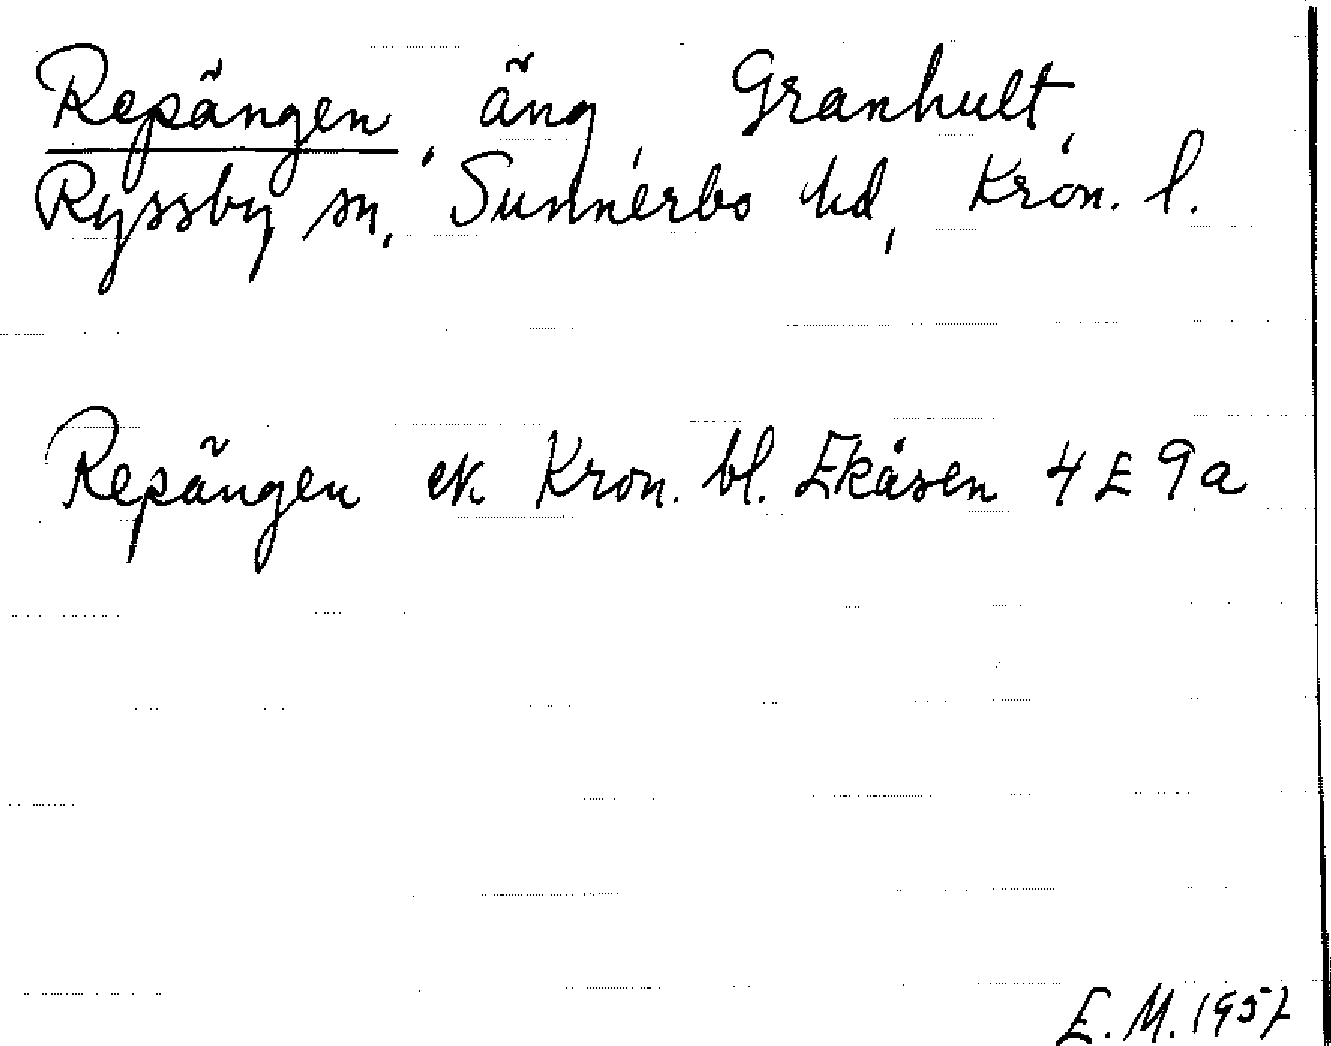 Repängen, äng, Granhult,
Ryssby sn, Sunnerbo hd, Kron. l.
Repängen ek. Kron. bl. Ekåsen 4 E 9a
E. M. 1957